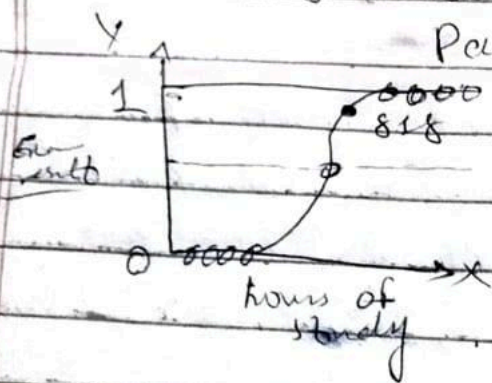 Y
Pa
1
818
Exam
result
0
X
hours of
study